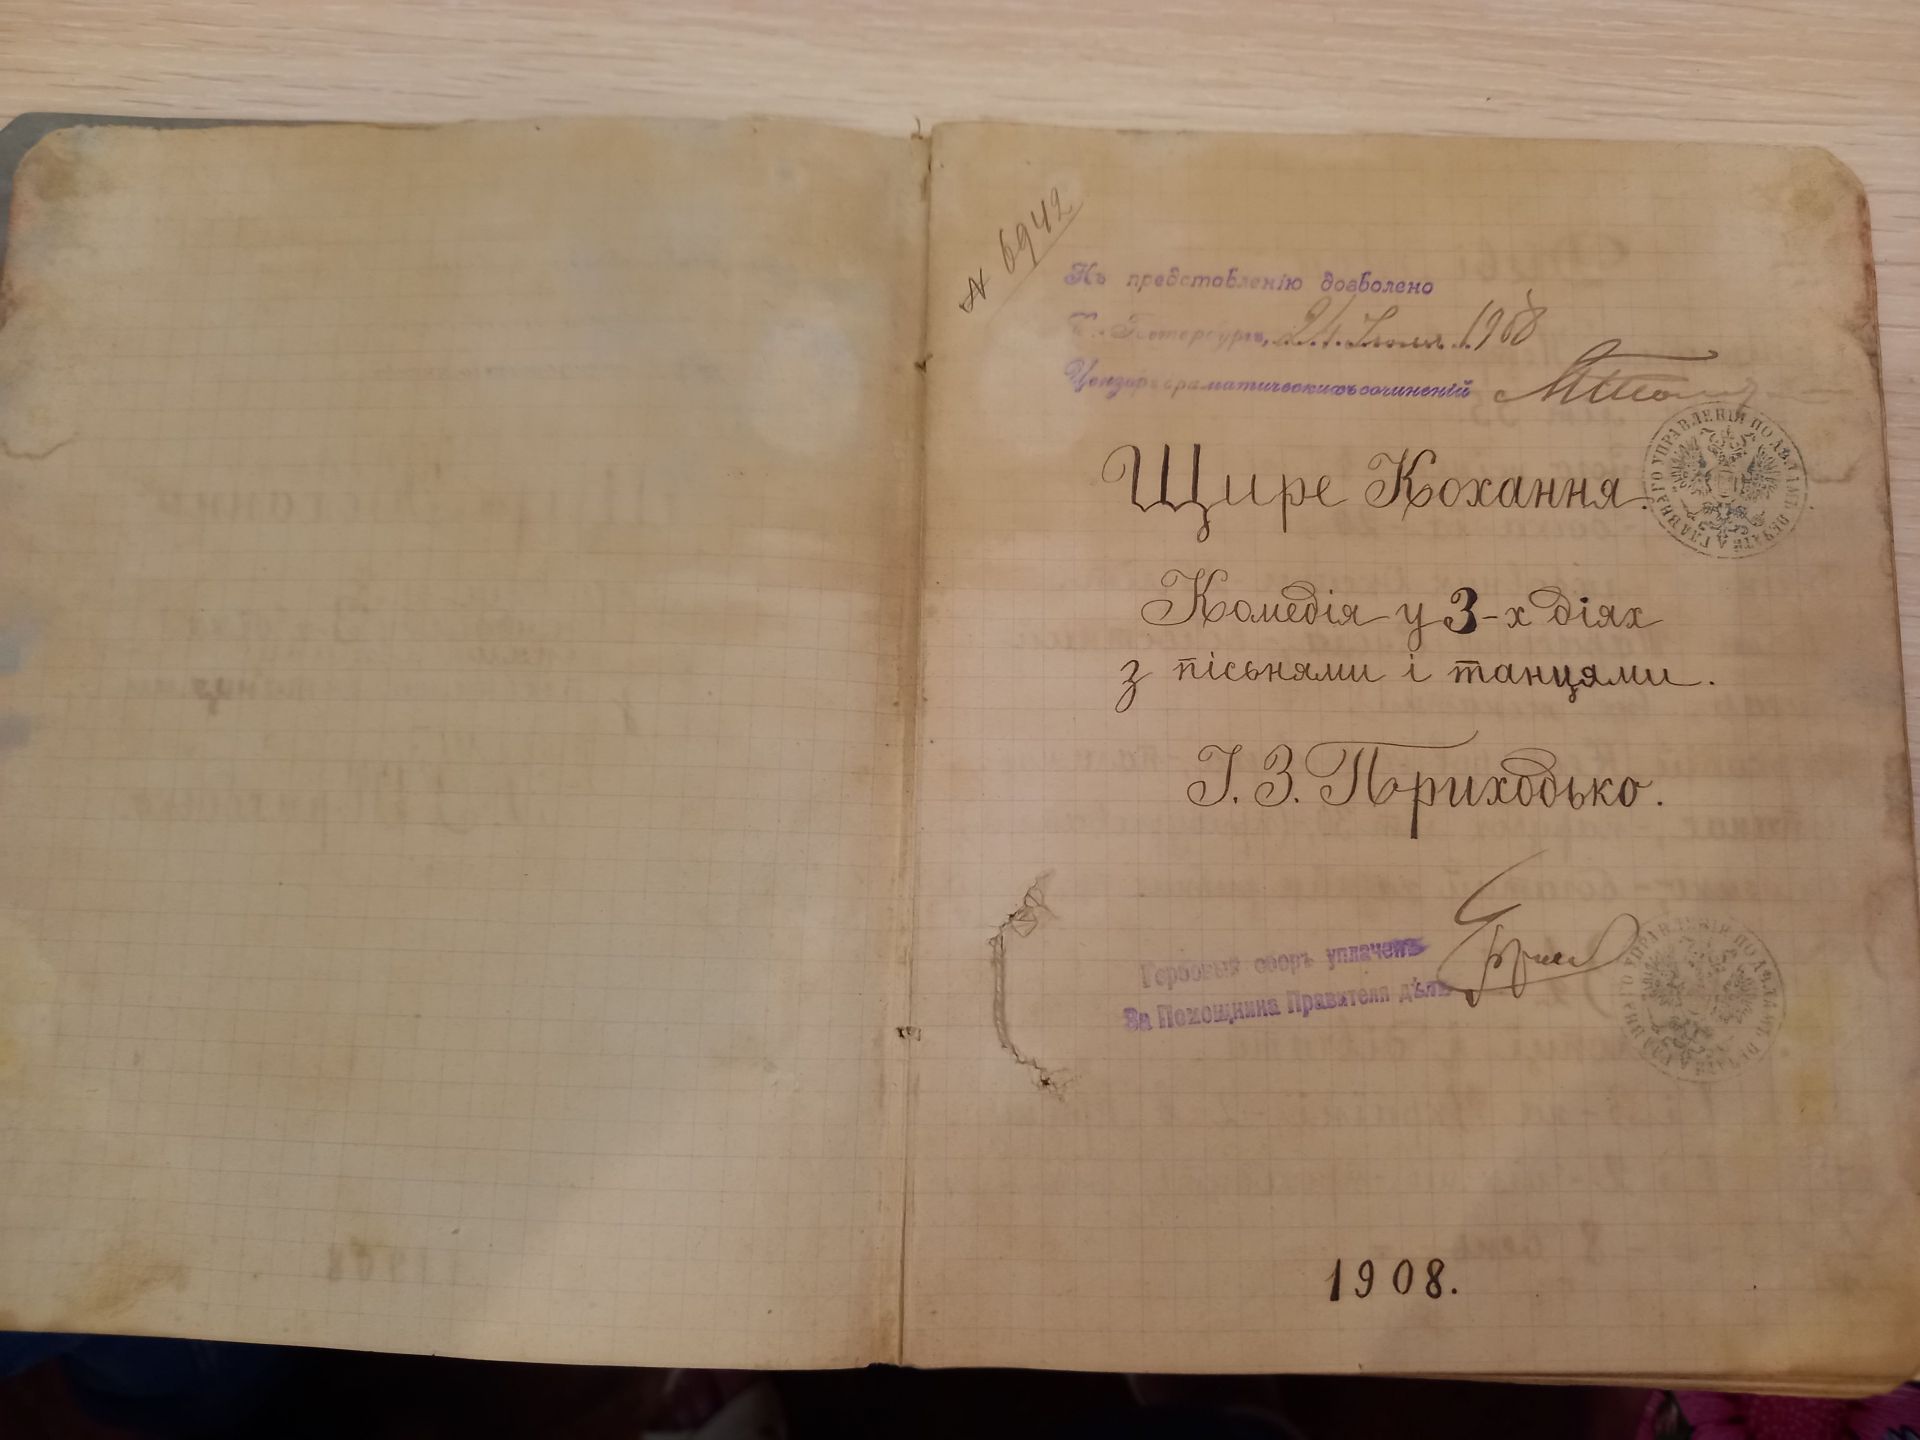 № 6942
Къ представленію дозволено
С.-Петербургъ, 24 1908
Цензоръ драматическихъ сочиненій
Щире Кохання.
ГЛАВНАГО УПРАВЛЕНІЯ ПО ДѢЛАМЪ ПЕЧАТИ
Комедія у 3-х діях
з пісьнями і танцями.
І. З. Приходько.
Гербовый сборъ уплаченъ
За Помощника Правителя дѣлъ
ГЛАВНАГО УПРАВЛЕНІЯ ПО ДѢЛАМЪ ПЕ
1908.